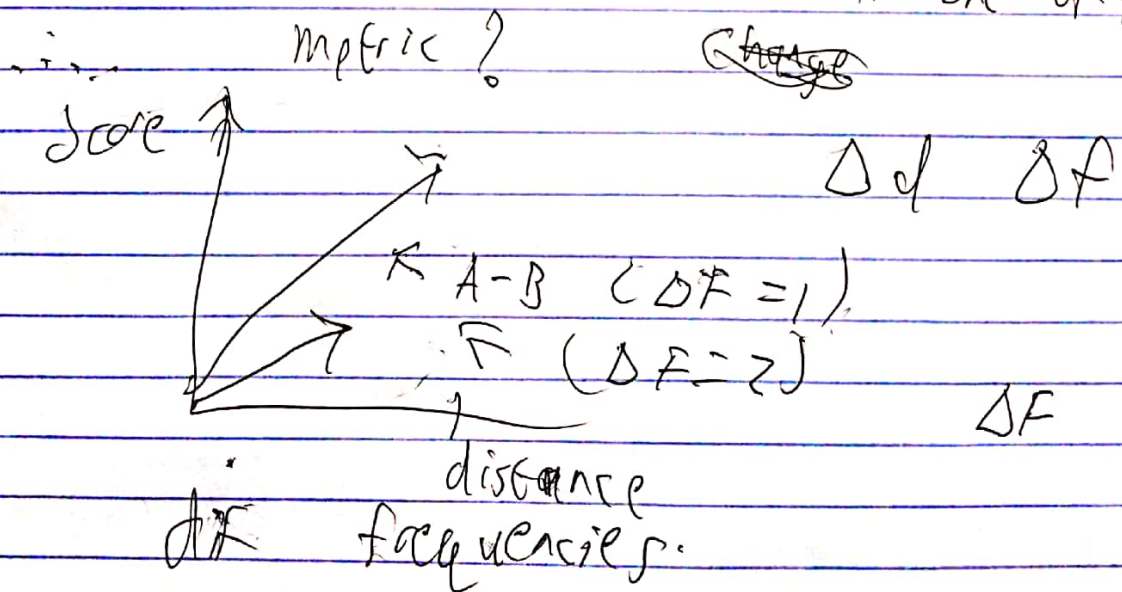 metric ?
score
Δd Δf
A-B (ΔF = 1)
(ΔF = 2)
ΔF
distance
dif frequencies.